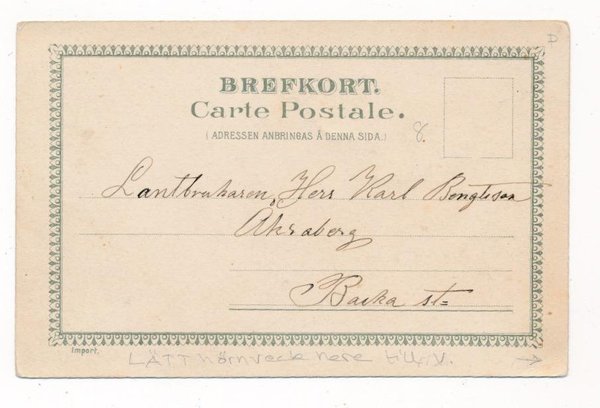 D
BREFKORT.
Carte Postale.
(ADRESSEN ANBRINGAS Å DENNA SIDA.)
8.
Lantbrukaren, Herr Karl Bengtsson
Åkraberg
Backa st=
Import.
LÄTT hörnveck nere till V.